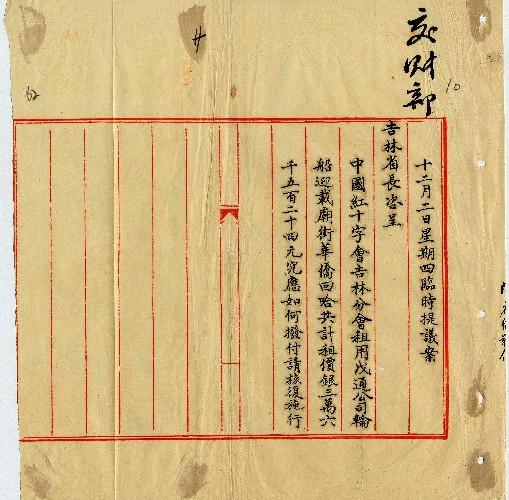 交財部
10
十二月二日星期四臨時提議案
吉林省長咨呈
中國紅十字會吉林分會租用戊通公司輪
船迎載廟街華僑回哈共計租價銀三萬六
千五百二十四元究應如何撥付請核復施行
62